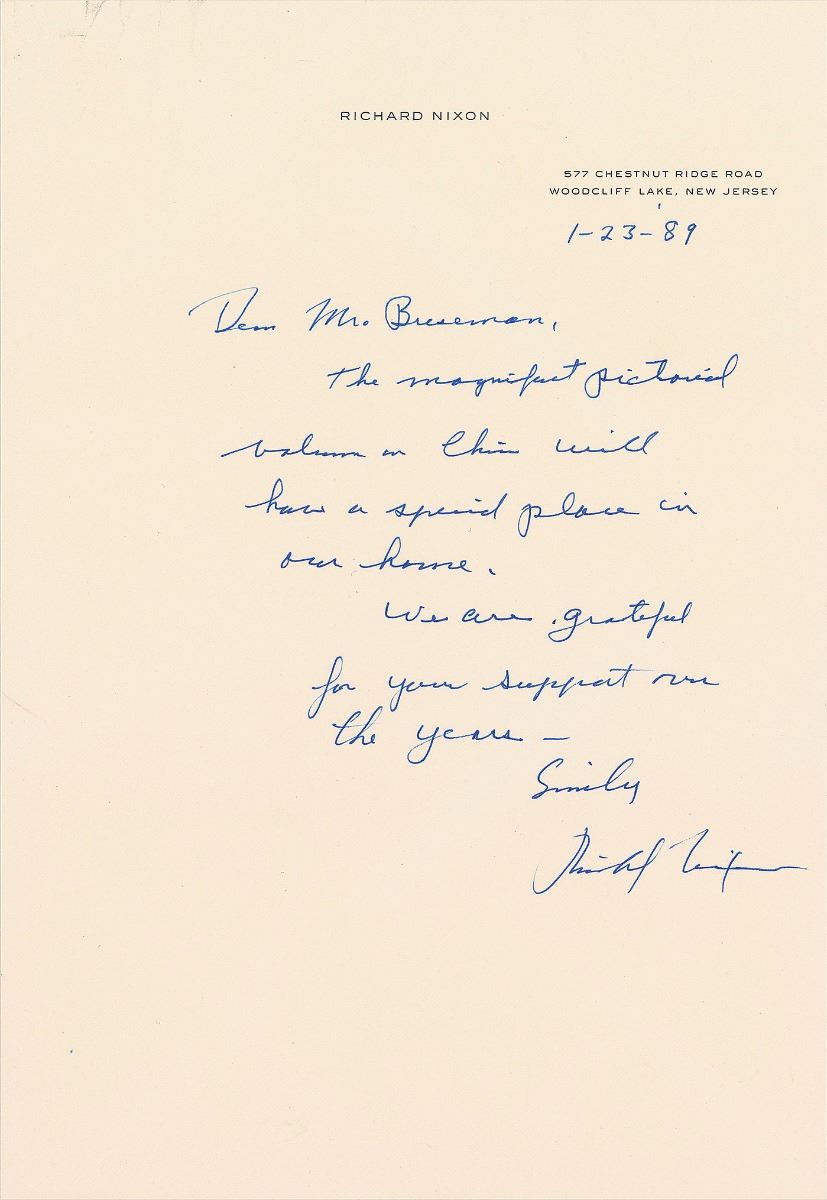 RICHARD NIXON
577 CHESTNUT RIDGE ROAD
WOODCLIFF LAKE, NEW JERSEY
1-23-89
Dear Mr. Breseman,
The magnificent pictorial
volume on China will
have a special place in
our home.
We are grateful
for your support over
the years —
Sincerely
Richard Nixon